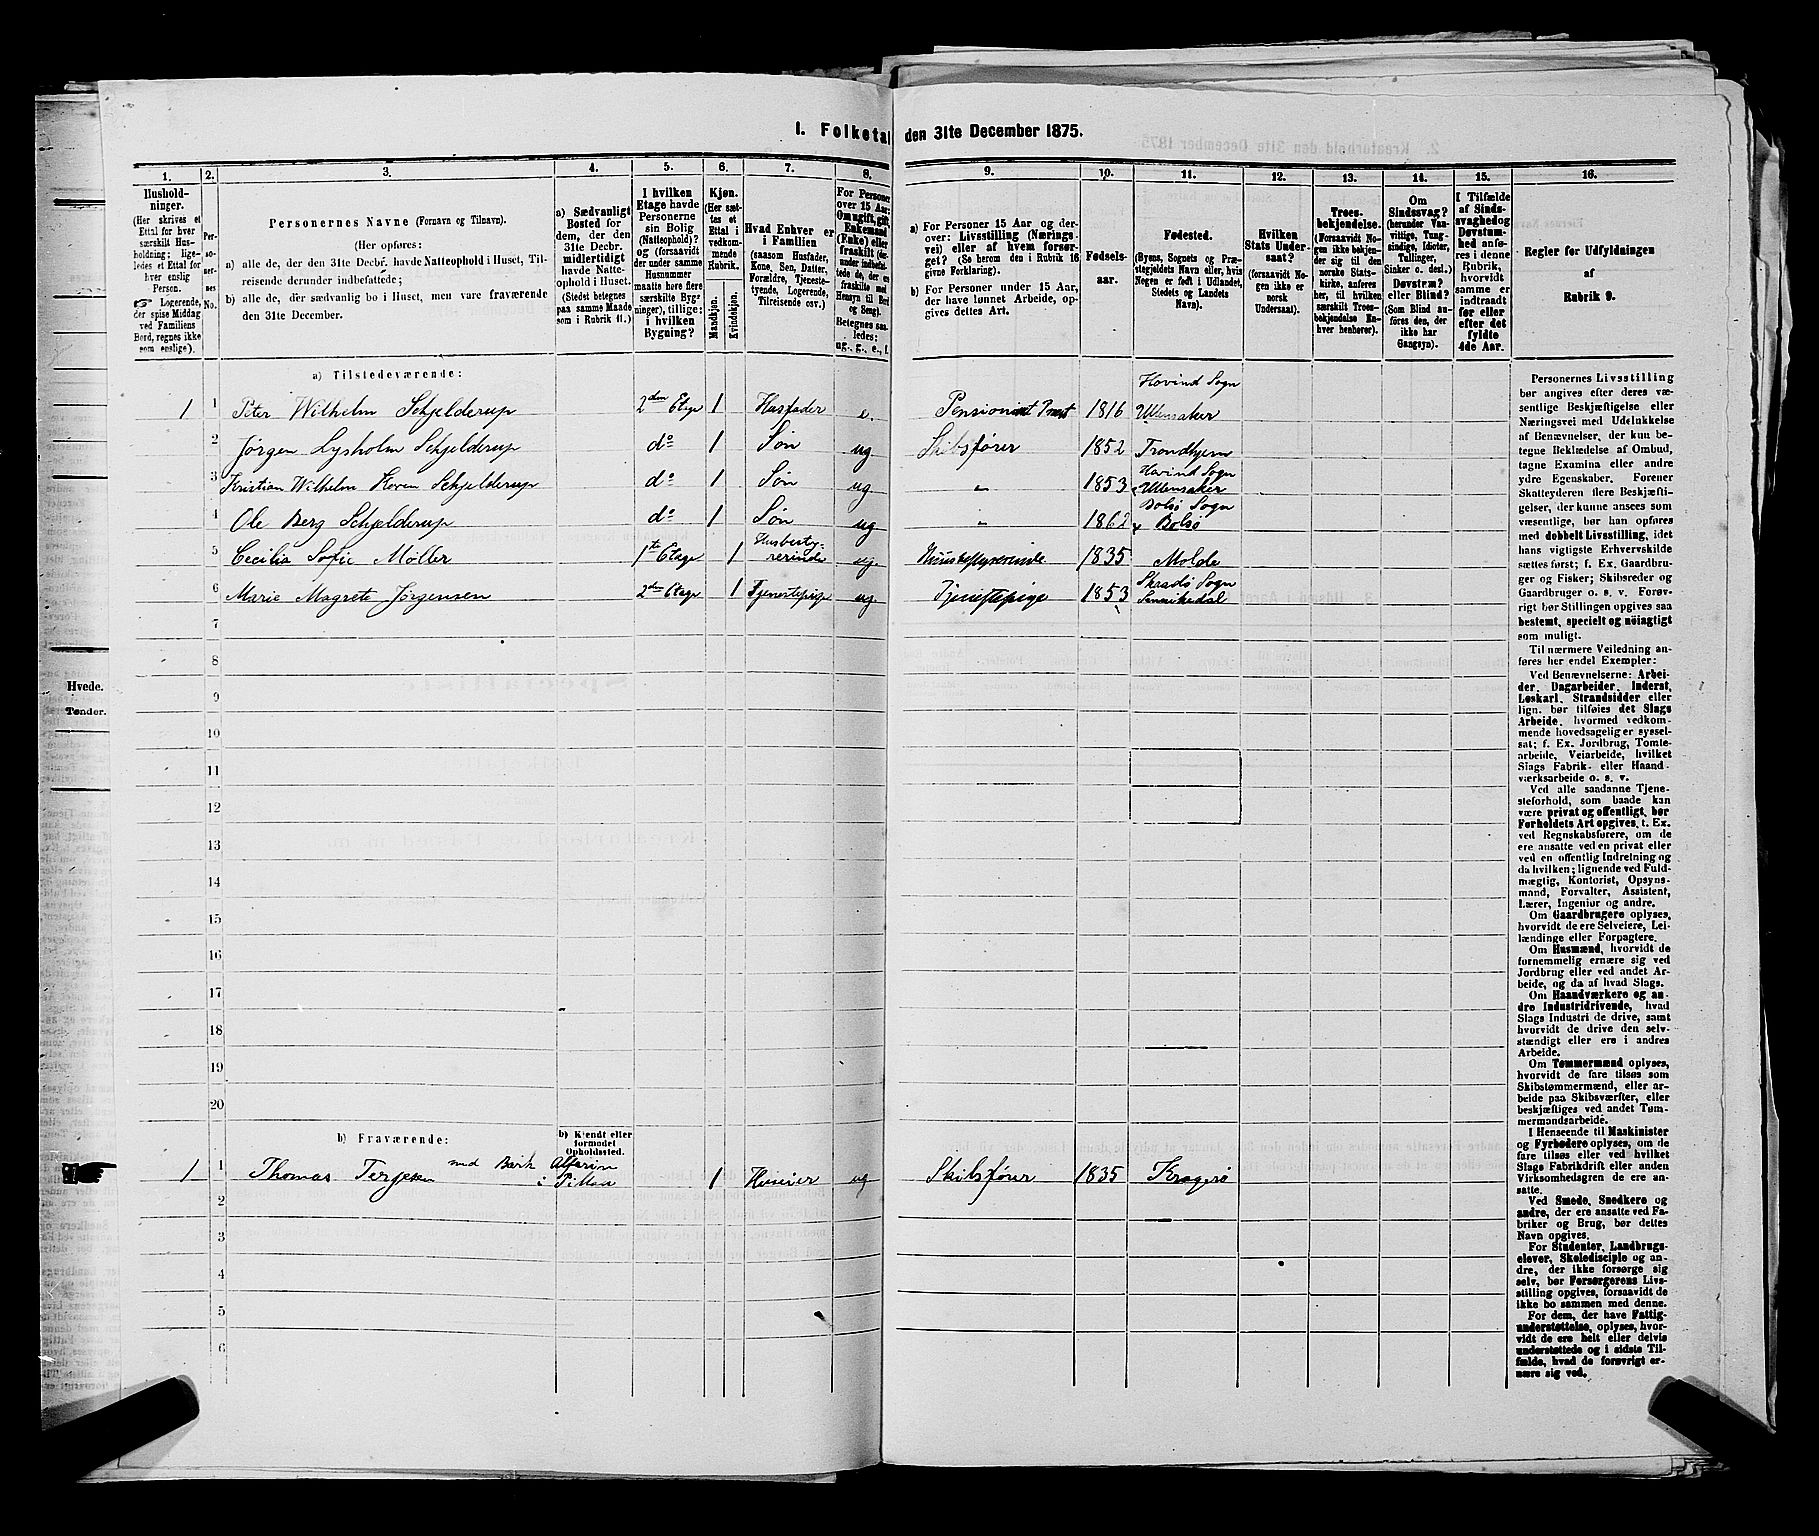 I. Folketal den 31te December 1875.
1. 2. 3. 4. 5. 6. 7. 8. 9. 10. 11. 12. 13. 14. 15. 16.
Hushold-
ninger.
(Her skrives et
Ettal for hver
særskilt Hus-
holdning; lige-
ledes et Ettal for
hver enslig
Person.
☞ Logerende,
der spise Middag
ved Familiens
Bord, regnes ikke
som enslige).
Per-
so-
ner-
nes
No.
Personernes Navne (Fornavn og Tilnavn).
(Her opføres:
a) alle de, der den 31te Decbr. havde Natteophold i Huset, Til-
reisende derunder indbefattede;
b) alle de, der sædvanlig bo i Huset, men vare fraværende
den 31te December.
a) Sædvanligt
Bosted for
dem, der den
31te Decbr.
midlertidigt
havde Natte-
ophold i Huset.
(Stedet betegnes
paa samme Maade
som i Rubrik 11.)
I hvilken
Etage havde
Personerne
sin Bolig
(Natteophold)?
og (forsaavidt
der under samme
Husnummer
maatte høre flere
særskilte Byg-
ninger), tillige:
i hvilken
Bygning?
Kjøn.
(Her sæt-
tes et
Ettal i
vedkom-
mende
Rubrik.
Mandkjøn.
Kvindekjøn.
Hvad Enhver er
i Familien
(saasom Husfader,
Kone, Søn, Datter,
Forældre, Tjeneste-
tyende, Logerende,
Tilreisende osv.)
For Personer
over 15 Aar:
Om ugift, gift,
Enkemand
(Enke) eller
fraskilt (der-
under indbefat-
tede de, der ere
fraskilte med
Hensyn til Bord
og Seng).
Betegnes saa-
ledes:
ug., g., e., f.
a) For Personer 15 Aar og der-
over: Livsstilling (Nærings-
vei) eller af hvem forsør-
get? (Se herom den i Rubrik 16
givne Forklaring).
b) For Personer under 15 Aar,
der have lønnet Arbeide, op-
gives dettes Art.
Fødsels-
aar.
Fødested.
(Byens, Sognets og Præ-
stegjeldets Navn eller, hvis
Nogen er født i Udlandet,
Stedets og Landets
Navn).
Hvilken
Stats Under-
saat?
(forsaavidt No-
gen ikke er
norsk
Undersaat).
Troes-
bekjendelse.
(Forsaavidt No-
gen ikke bekjen-
der sig til den
norske Stats-
kirke, anføres
her, til hvilken
særskilt Troes-
bekjendelse En-
hver henhører).
Om
Sindssvag?
(herunder Van-
vittige, Tung-
sindige, Idioter,
Tullinger,
Sinker o. desl.)
Døvstum?
eller Blind?
(Som Blind an-
føres den, der
ikke har
Gangsyn).
I Tilfælde
af Sinds-
svaghed og
Døvstum-
hed anfø-
res i denne
Rubrik,
hvorvidt
samme er
indtraadt
før eller
efter det
fyldte
4de Aar.
Regler for Udfyldningen
af
Rubrik 9.
a) Tilstedeværende:
1 1 Peter Wilhelm Schjelderup 2den Etage 1 Husfader e. Pensionist Præst 1816 Hovind Sogn Ullensaker
2 Jørgen Lysholm Schjelderup do 1 Søn ug Skibsfører 1852 Trondhjem
3 Kristian Wilhelm Koren Schjelderup do 1 Søn ug „ 1853 Hovind Sogn Ullensaker
4 Ole Berg Schjelderup do 1 Søn ug „ 1862 Bolsø Sogn Bolsø
5 Cecilia Sofie Møller 1te Etage 1 Husbesty-rerinde ug. 1835 Molde
6 Marie Magrete Jørgensen 2den Etage 1 Tjenestepige ug Tjenestepige 1853 Sogn Sannikedal
7
8
9
10
11
12
13
14
15
16
17
18
19
20
b) Fraværende:
b) Kjendt eller
formodet
Opholdssted.
1 1 Thomas Terjesen med Bark i 1 Huseier ug Skibsfører 1835 Kragerø
2
3
4
5
6
Hvede.
Tønder.
Personernes Livsstilling
bør angives efter deres væ-
sentlige Beskjæftigelse eller
Næringsvei med Udelukkelse
af Benævnelser, der kun be-
tegne Beklædelse af Ombud,
tagne Examina eller andre
ydre Egenskaber. Forener
Skatteyderen flere Beskjæfti-
gelser, der kunne ansees som
væsentlige, bør han opføres
med dobbelt Livsstilling, idet
hans vigtigste Erhvervskilde
sættes først; f. Ex. Gaardbru-
ger og Fisker; Skibsreder og
Gaardbruger o. s. v. Forøv-
rigt bør Stillingen opgives saa
bestemt, specielt og nøiagtigt
som muligt.
Til nærmere Veiledning an-
føres her endel Exempler:
Ved Benævnelserne: Arbei-
der, Dagarbeider, Inderst,
Løskarl, Strandsidder eller
lign. bør tilføies det Slags
Arbeide, hvormed vedkom-
mende hovedsagelig er syssel-
sat; f. Ex. Jordbrug, Tomte-
arbeide, Veiarbeide, hvilket
Slags Fabrik- eller Haand-
værksarbeide o. s. v.
Ved alle saadanne Tjene-
steforhold, som baade kan
være privat og offentligt, bør
Forholdets Art opgives, t. Ex.
ved Regnskabsførere, om de
ere ansatte ved en privat eller
ved en offentlig Indretning og
da hvilken; lignende ved Fuld-
mægtig, Kontorist, Opsyns-
mand, Forvalter, Assistent,
Lærer, Ingeniør og andre.
Om Gaardbrugere oplyses,
hvorvidt de ere Selveiere, Lei-
lændinge eller Forpagtere.
Om Husmænd, hvorvidt de
fornemmelig ernære sig ved
Jordbrug eller ved andet Ar-
beide, og da af hvad Slags.
Om Haandværkere og an-
dre Industridrivende, hvad
Slags Industri de drive, samt
hvorvidt de drive den selv-
stændigt eller ere i andres
Arbeide.
Om Tømmermænd oplyses,
hvorvidt de fare tilsøs som
Skibstømmermænd, eller ar-
beide paa Skibsværfter, eller
beskjæftiges ved andet Tøm-
mermandsarbeide.
I Henseende til Maskinister
og Fyrbødere oplyses, om de
fare tilsøs eller ved hvilket
Slags Fabrikdrift eller anden
Virksomhedsgren de ere an-
satte.
Ved Smede, Snedkere og
andre, der ere ansatte ved Fa-
briker og Brug, bør dettes
Navn opgives.
For Studenter, Landbrugs-
elever, Skoledisciple og an-
dre, der ikke forsørge sig
selv, bør Forsørgerens Livs-
stilling opgives, forsaavidt de
ikke bo sammen med denne.
For dem, der have Fattig-
understøttelse, oplyses, hvor-
vidt de ere helt eller delvis
understøttede og i sidste Til-
fælde, hvad de forøvrigt er-
nære sig ved.